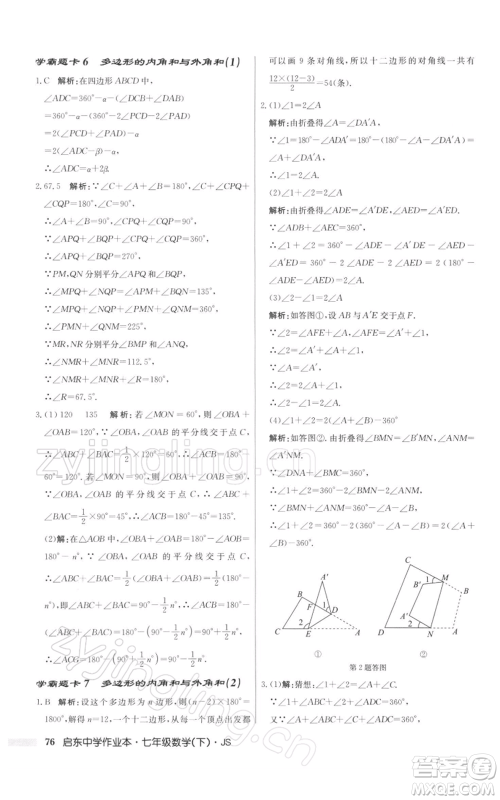 学霸题卡6 多边形的内角和与外角和(1)
1.C 解析:在四边形ABCD中,
∠ADC=360°-α-(∠DCB+∠DAB)
=360°-α-(360°-2∠PDC-2∠PDA)
=2(∠ADC-β)-α,
∴∠ADC=α+2β.
2.67.5 解析:∵∠C+∠A+∠B=180°,∠C+∠CPQ+
∠CQP=180°,
∴∠A+∠B=∠CPQ+∠CQP=90°.
∴∠APQ+∠BQP=270°.
∵PM,QN分别平分∠APQ和∠BQP,
∴∠BMP+∠ANQ+∠A+∠B=360°-∠APQ+
360°-∠BQP=360°.
∵MR,NR分别平分∠BMP和∠ANQ,
∴2∠R+∠R+∠MPQ+∠NQP=360°.
∴∠R=67.5°.
3.(1)120 135 解析:若∠MON=60°,则∠OBA+
∠OAB=120°;∵∠OBA、∠OAB的平分线交于点C,
∴∠ABC+∠BAC=1/2×120°=60°.∴∠ACB=180°-
60°=120°.若∠MON=90°,则∠OBA+∠OAB=90°.
∵∠OBA、∠OAB的平分线交于点C,∴∠ABC+
∠BAC=1/2×90°=45°,∴∠ACB=180°-45°=135°.
(2)解:在△AOB中,∠OBA+∠OAB=180°-
∠AOB=180°-n°,
∵∠OBA、∠OAB的平分线交于点C,∴∠ABC+
∠BAC=1/2(∠OBA+∠OAB)=1/2(180°-n°),
即∠ABC+∠BAC=90°-1/2n°,
∴∠ACB=180°-(∠ABC+∠BAC)=180°-
(90°-1/2n°)=90°+1/2n°.
学霸题卡7 多边形的内角和与外角和(2)
1.B 解析:设这个多边形为n边形,由题意得(n-2)×
180°=1800°,解得n=12,一个十二边形,从一个顶点出发都
可以画9条对角线,所以十二边形的对角线一共有
12×(12-3)/2=54(条).
2.(1)∠1=2∠A
解析:由折叠得∠A=∠DA′A,
∵∠1=∠A+∠DA′A,
∴∠1=2∠A.
(2)∠1+∠2=2∠A
解析:由折叠得∠ADE=∠A′DE,∠AED=∠A′ED,
∵∠ADB+∠AEC=360°,
∴∠1+∠2=360°-∠ADE-∠A′DE-∠AED-
∠A′ED=360°-2∠ADE-2∠AED,
∴∠1+∠2=2(180°-∠ADE-∠AED)=2∠A.
(3)∠2-∠1=2∠A
解析:如答图①,由折叠得∠A=∠A′.
∵∠2=∠AFE+∠A,∠AFE=∠A′+∠1,
∴∠2=∠A′+∠A+∠1.
∴∠2=2∠A+∠1.
∴∠2-∠1=2∠A.
(4)∠1+∠2=2(∠A+∠B)-360°
解析:如答图②.由折叠得∠BMN=∠B′MN,
∠ANM=∠A′NM.
∵∠DNA+∠BMC=360°,
∴∠1+∠2=360°-2∠BMN-2∠ANM.
∵∠BMN+∠ANM=360°-∠A-∠B,
∴∠1+∠2=360°-2(360°-∠A-∠B)=
2(∠A+∠B)-360°.
①
②
第2题答图
3.(1)解:猜想:∠1+∠2=∠3+∠4.
76 启东中学作业本·七年级数学(下)·JS
zyjingling.com